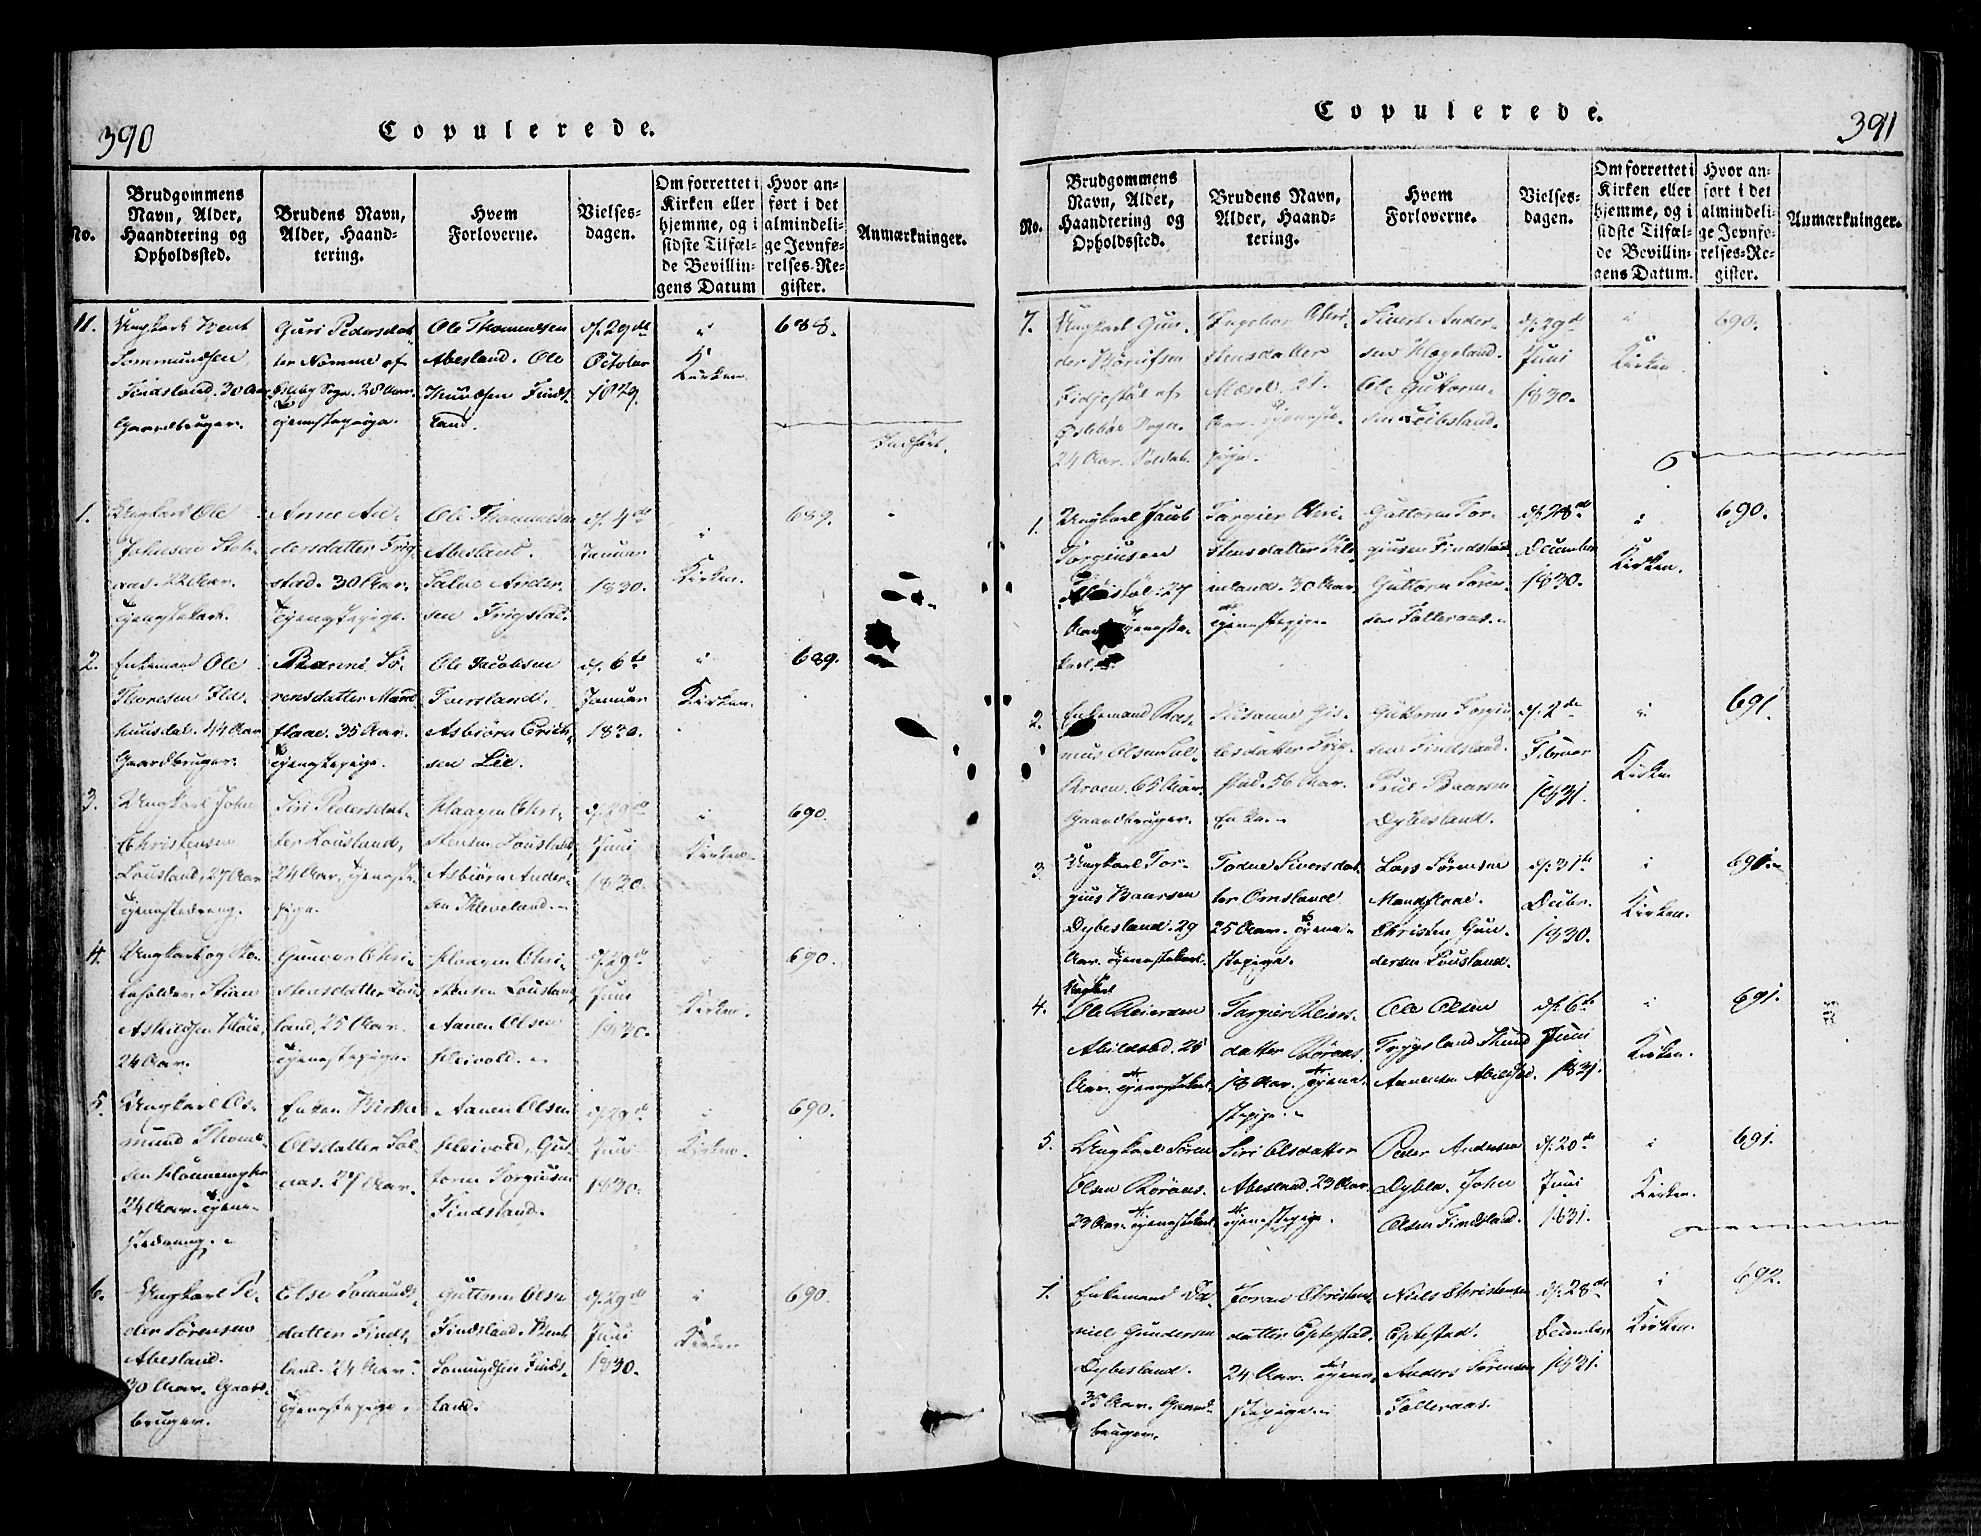 390
Copulerede.
No.
Brudgommens Navn, Alder, Haandtering og Opholdssted.
Brudens Navn, Alder, Haandtering.
Hvem Forloverne.
Vielsesdagen.
Om forrettet i Kirken eller hjemme, og i sidste Tilfælde Bevillingens Datum
Hvor anført i det almindelige Jevnførelses-Register.
Anmærkninger.
11.
Ungkarl
Findsland. 30 Aar
Gaardbruger.
Guri Pedersdat
ter
Sogn. 28 Aar.
Tjenestepige.
Ole Thommesen
Abesland. Ole
Knudsen Finds
land.
d. 29de
October
1829.
i
Kirken
688.
Indført.
1.
Ungkarl Ole
Johnsen
22 Aar.
Tjenestekarl.
Anne An-
dersdatter Trig
stad. 30 Aar.
Tjenestepige.
Ole Thommesen
Abesland.
Salve Ander-
sen Trigstad.
d. 4de
Januar
1830.
i
Kirken.
689.
2.
Enkemand Ole
Thoresen
44 Aar
Gaardbruger.
Sø-
rensdatter Mand
flaae. 35 Aar.
Tjenestepige.
Ole Jacobsen
Tversland.
Asbiørn Erich
sen Lie.
d. 6te
Januar
1830.
i
Kirken.
689.
3.
Ungkarl John
Christensen
Lousland, 27 Aar
Tjenestedreng.
Siri Pedersdat-
ter Lousland,
24 Aar. Tjeneste
pige.
Haagen Chri-
stensen Lousland
Asbiørn Ander-
sen Kleveland.
d. 29de
Juni
1830.
i
Kirken.
690.
4.
Ungkarl og
Stian
24 Aar.
Gunvor Chri-
stensdatter Lous
land, 25 Aar.
Tjenestepige
Haagen Chri-
stensen Lousland
Aanen Olsen
Heivold.
d. 29de
Juni
1830.
i
Kirken.
690.
5.
Ungkarl Os-
mund Thom-
sen
24 Aar. Tjene-
stedreng.
Enken
Olsdatter
27 Aar.
Aanen Olsen
Heivold, Gut-
torm Torgiusen
Findsland.
d. 29de
Juni
1830.
i
Kirken.
690.
6.
Ungkarl Pe-
der Sørensen
Abesland.
30 Aar. Gaard-
bruger.
Else
datter Finds-
land. 24 Aar
Tjenestepige.
Guttorm Olsen
Findsland.
Finds-
land.
d. 29de
Juni
1830.
i
Kirken
690
391
Copulerede.
No.
Brudgommens Navn, Alder, Haandtering og Opholdssted.
Brudens Navn, Alder, Haandtering.
Hvem Forloverne.
Vielsesdagen.
Om forrettet i Kirken eller hjemme, og i sidste Tilfælde Bevillingens Datum.
Hvor anført i det almindelige Jevnførelses-Register.
Anmærkninger.
7.
Ungkarl Gun-
der
af
Sogn.
24 Aar. Soldat.
Ingebor Chri-
stensdatter
Mæsel. 21.
Aar. Tjeneste
pige.
Sivert Ander-
sen Hægeland.
Ole Guttorm-
sen Leibsland.
d. 29de
Juni
1830.
i
Kirken
690.
1.
Ungkarl Jacob
Torgiusen
27
Aar Tjeneste-
karl.
Targier Chri-
stensdatter
30 Aar
Tjenestepige
Guttorm Tor-
giusen Findsland
Guttorm Søren-
sen Folleraas.
d. 28de
December
1830.
i
Kirken.
690.
2.
Enkemand Ras-
mus Olsen
65 Aar.
Gaardbruger.
Susanne
datter Trig-
stad. 56 Aar.
Enke.
Guttorm Torgiu
sen Findsland.
Poul Baarsen
Dybesland.
d. 2de
Februar
1831.
i
Kirken
691.
3.
Ungkarl Tor-
gius Baarsen
Dybesland. 29
Aar. Tjenestekarl.
Todne Siversdat
ter Omsland
25 Aar. Tjene-
stepige.
Lars Sørensen
Mandflaae.
Christen Gun-
dersen Lousland.
d. 31te
Decbr.
1830.
i
Kirken.
690.
4.
Ungkarl
Ole Reiersen
Abildsted. 25
Aar. Tjenestekarl.
Targier Reiers-
datter Røraas
18 Aar. Tjene-
stepige.
Ole Olsen
Trygsland Knud
Aanensen Abildsted.
d. 6te
Juni
1831.
i
Kirken.
691.
5.
Ungkarl Søren
Olsen Røraas.
23 Aar. Tjenestekarl
Siri Olsdatter
Abesland. 23 Aar.
Tjenestepige.
Peder Andersen
Dyblen. John
Olsen Findsland.
d. 20de
Juni
1831.
i
Kirken.
691.
1.
Enkemand Da-
niel Gundersen
Dybesland.
35 Aar. Gaard-
bruger.
Joran Christens
datter Eptestad.
24 Aar. Tjene-
stepige.
Niels Christensen
Eptestad.
Anders Sørensen
Folleraas.
d. 28de
December
1831.
i
Kirken.
692.